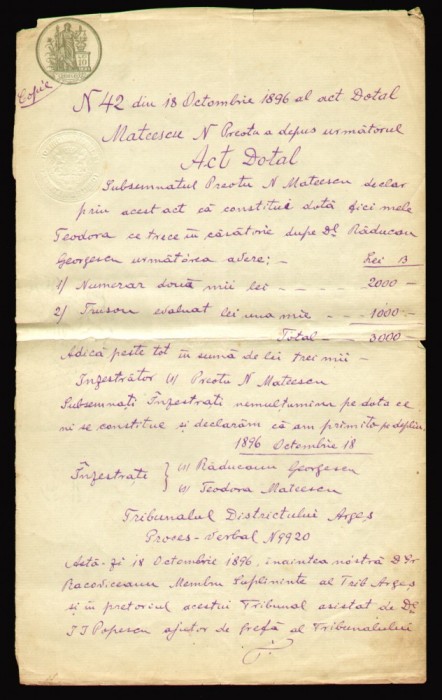 Copie
N 42 din 18 Octombrie 1896 al act. Dotal
Mateescu N Preotu a depus următorul
Act Dotal
Subsemnatul Preotu N Mateescu declar
prin acest act că constitui dotă fiicei mele
Teodora ce trece în căsătorie dupe Dl Răducan
Georgescu următórea avere; - Lei B
1/ Numerar două mii lei - - - - 2000 -
2/ Trusou evaluat lei una mie - - - 1000 -
Total - 3000 -
Adică peste tot în sumă de lei trei mii -
Înzestrător ss/ Preotu N Mateescu
Subsemnați Înzestrați ne mulțumim pe dota ce
ni se constitue și declarăm că am primit'o pe deplin.
1896 Octombrie 18
Înzestrați } ss/ Răducanu Georgescu
ss/ Teodora Mateescu
Tribunalul Districtului Argeș
Proces-Verbal N 9920
Astă-zi 18 Octombrie 1896, înaintea nóstră D
Racoviceanu Membru Suplininte al Trib Argeș
și în pretoriul acestui Tribunal asistat de Dl
I I Popescu ajutor de grefă al Tribunalului